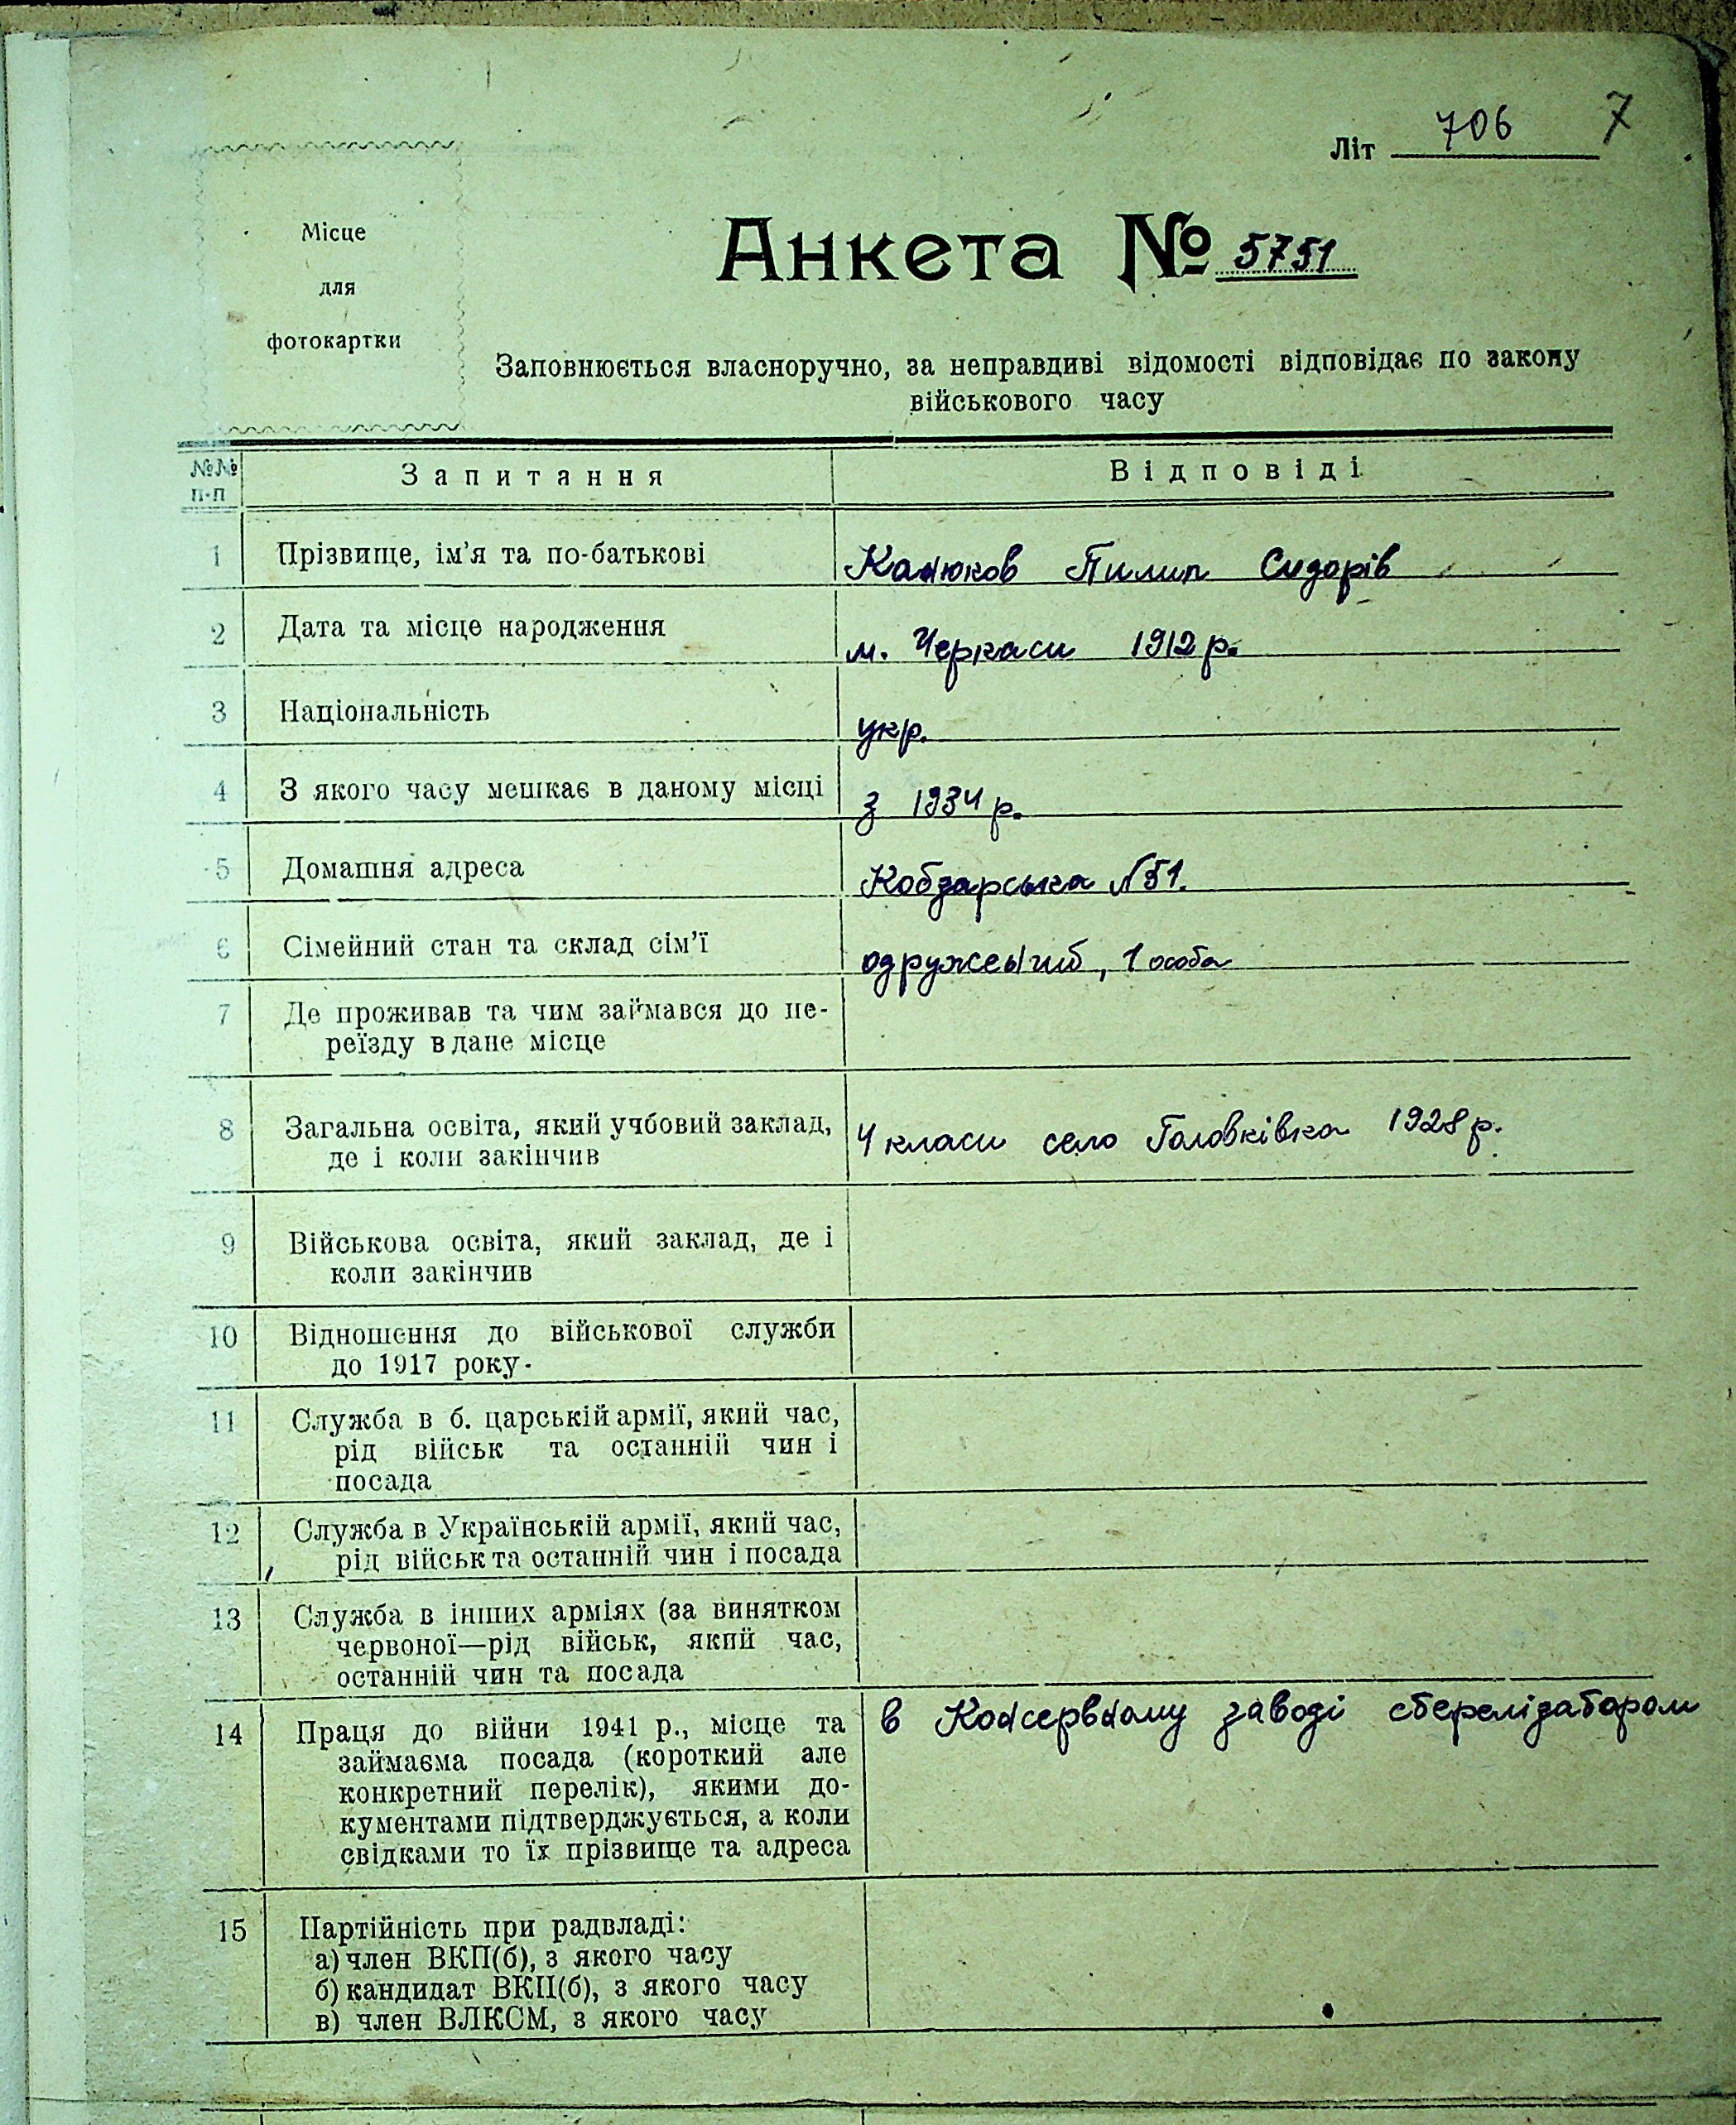 Літ 706 7
Місце
для
фотокартки
Анкета № 5751
Заповнюється власноручно, за неправдиві відомості відповідає по закону
військового часу
№№ п-п Запитання Відповіді
1 Прізвище, ім'я та по-батькові Канюков Пилип Сидорів
2 Дата та місце народження м. Черкаси 1912 р.
3 Національність укр.
4 З якого часу мешкає в даному місці з 1934 р.
5 Домашня адреса Кобзарська №51.
6 Сімейний стан та склад сім'ї одружений, 1 особа
7 Де проживав та чим займався до пе-
реїзду в дане місце
8 Загальна освіта, який учбовий заклад,
де і коли закінчив 4 класи село Головківка 1928 р.
9 Військова освіта, який заклад, де і
коли закінчив
10 Відношення до військової служби
до 1917 року.
11 Служба в б. царській армії, який час,
рід військ та останній чин і
посада
12 Служба в Українській армії, який час,
рід військ та останній чин і посада
13 Служба в інших арміях (за винятком
червоної—рід військ, який час,
останній чин та посада
14 Праця до війни 1941 р., місце та в Консервному заводі стерелізатором
займаєма посада (короткий але
конкретний перелік), якими до-
кументами підтверджується, а коли
свідками то їх прізвище та адреса
15 Партійність при радвладі:
а) член ВКП(б), з якого часу
б) кандидат ВКП(б), з якого часу
в) член ВЛКСМ, з якого часу